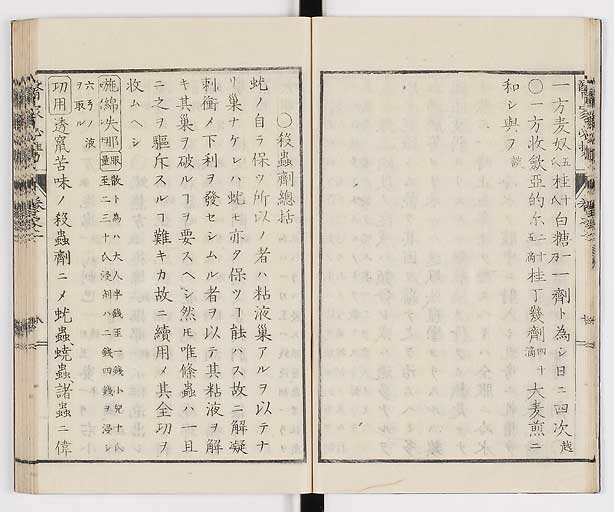 一方麦奴五氏桂十氏白糖一刄一齊ト為シ日ニ四次
〇一方收斂亜的尓二十五滴桂丁幾劑四十滴大麦煎ニ
和シ與フ
〇殺蟲劑總括
虵ノ自ラ保ツ所以ノ者ハ粘液巣アルヲ以テナ
リ巣ナケレハ虵モ亦タ保ツヿ能ハス故ニ解凝
刺衝メ下利ヲ發セシムル者ヲ以テ其粘液ヲ解
キ其巣ヲ破ルヿヲ要スヘシ然モ唯絛蟲ハ一旦
ニ之ヲ驅斥スルヿ難キカ故ニ續用メ其全功ヲ
收ムヘシ
施綿失那服量散ト為ハ大人半銭至一銭ト兒十氏至二三十氏浸剤ハ二銭四銭ヲ浸シ
六ヲノ液ヲ取ル
功用透竄苦味ノ殺蟲劑ニメ虵蟲蟯蟲諸蟲ニ偉